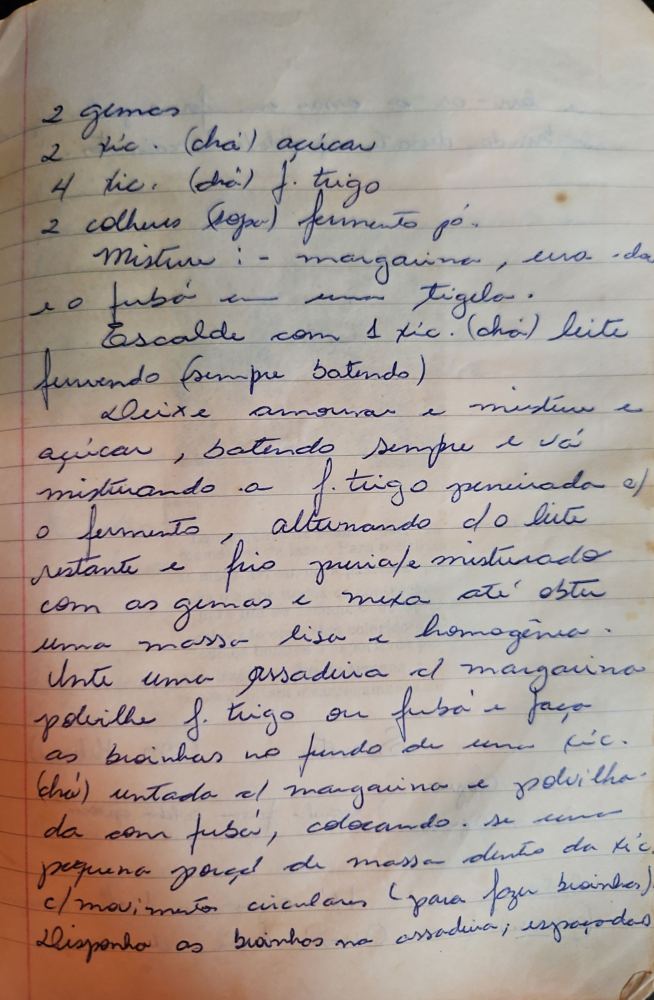 2 gemas
2 xíc. (chá) açúcar
4 xic. (chá) f. trigo
2 colheres (sopa) fermento pó.
Misture : - margarina, erva-do
e o fubá em uma tigela.
Escalde com 1 xíc. (chá) leite
fervendo (sempre batendo)
Deixe amornar e misture o
açúcar, batendo sempre e vá
misturando a f. trigo peneirada c/
o fermento, alternando c/o leite
restante e frio previa/e misturado
com as gemas e mexa até obter
uma massa lisa e homogênea.
Unte uma assadeira c/ margarina
polvilhe f. trigo ou fubá e faça
as broinhas no fundo de uma xíc.
(chá) untada c/ margarina e polvilha-
da com fubá, colocando-se uma
pequena porçaõ de massa dentro da xíc.
c/movimentos circulares (para fazer broinhas)
Disponha as broinhas na assadeira, espaçadas